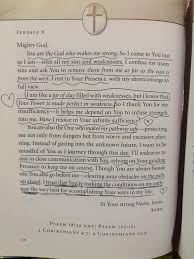 January 8
Mighty God,
You are the God who makes me strong. So I come to You just
as I am—with all my sins and weaknesses. I confess my many
sins and ask You to remove them from me as far as the east is
from the west. I rest in Your Presence, with my shortcomings
in full view.
I am like a jar of clay filled with weaknesses, but I know that
Your Power is made perfect in weakness. So I thank You for my
insufficiency—it helps me depend on You to infuse strength
into me. How I rejoice in Your infinite sufficiency!
You are also the One who makes my pathway safe—protecting
me not only from dangers but from worry and excessive plan-
ning. Instead of gazing into the unknown future, I want to be
mindful of You as I journey through this day. I'll endeavor to
stay in close communication with You, relying on your guiding
Presence to keep me on course. Though You are always beside
me, You are also going before me—clearing away obstacles on the
path up ahead. I trust that You're making the conditions on my path-
way the very best for accomplishing Your ways in my life.
In Your strong Name, Jesus,
Amen
2 Corinthians 4:7; 2 Corinthians